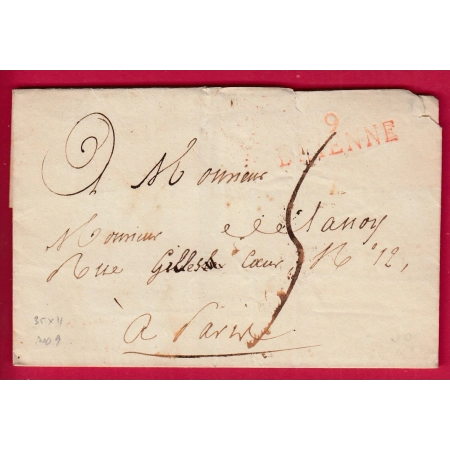 9
BRIENNE
A Monsieur
Monsieur de Lanoy
Rue Gilles Cœur N° 12,
A Paris
5
35 x 11
no 9